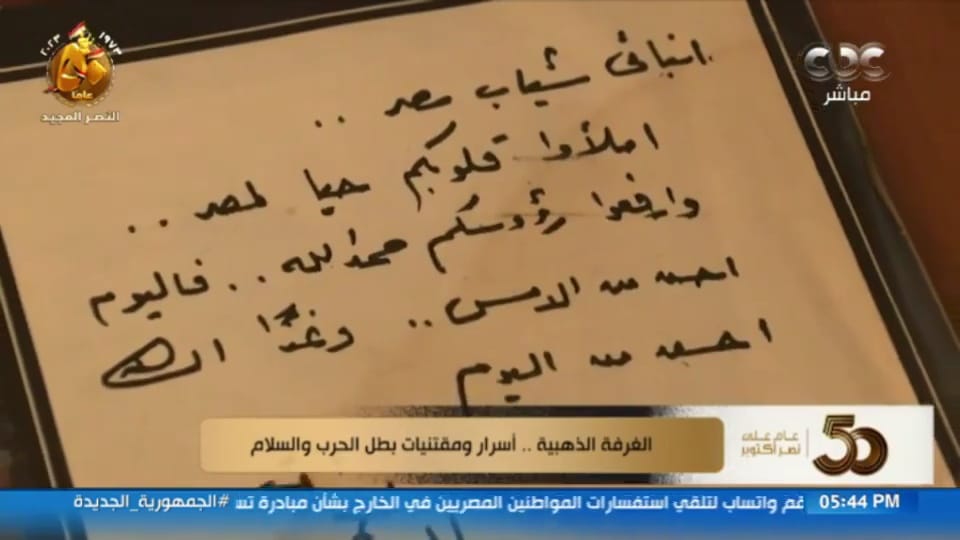 ١٩٧٣
٢٠٢٣
عاما
النصر المجيد
CBC
مباشر
ابنائى شباب مصر ..
املأوا قلوبكم حبا لمصر ..
وارفعوا رؤوسكم حمدا لله .. فاليوم
احسن من الامس .. وغدًا ان شاء الله
احسن من اليوم
الغرفة الذهبية .. أسرار ومقتنيات بطل الحرب والسلام
50
عام على
نصر أكتوبر
05:44 PM
قم واتساب لتلقي استفسارات المواطنين المصريين في الخارج بشأن مبادرة تس
#الجمهورية_الجديدة